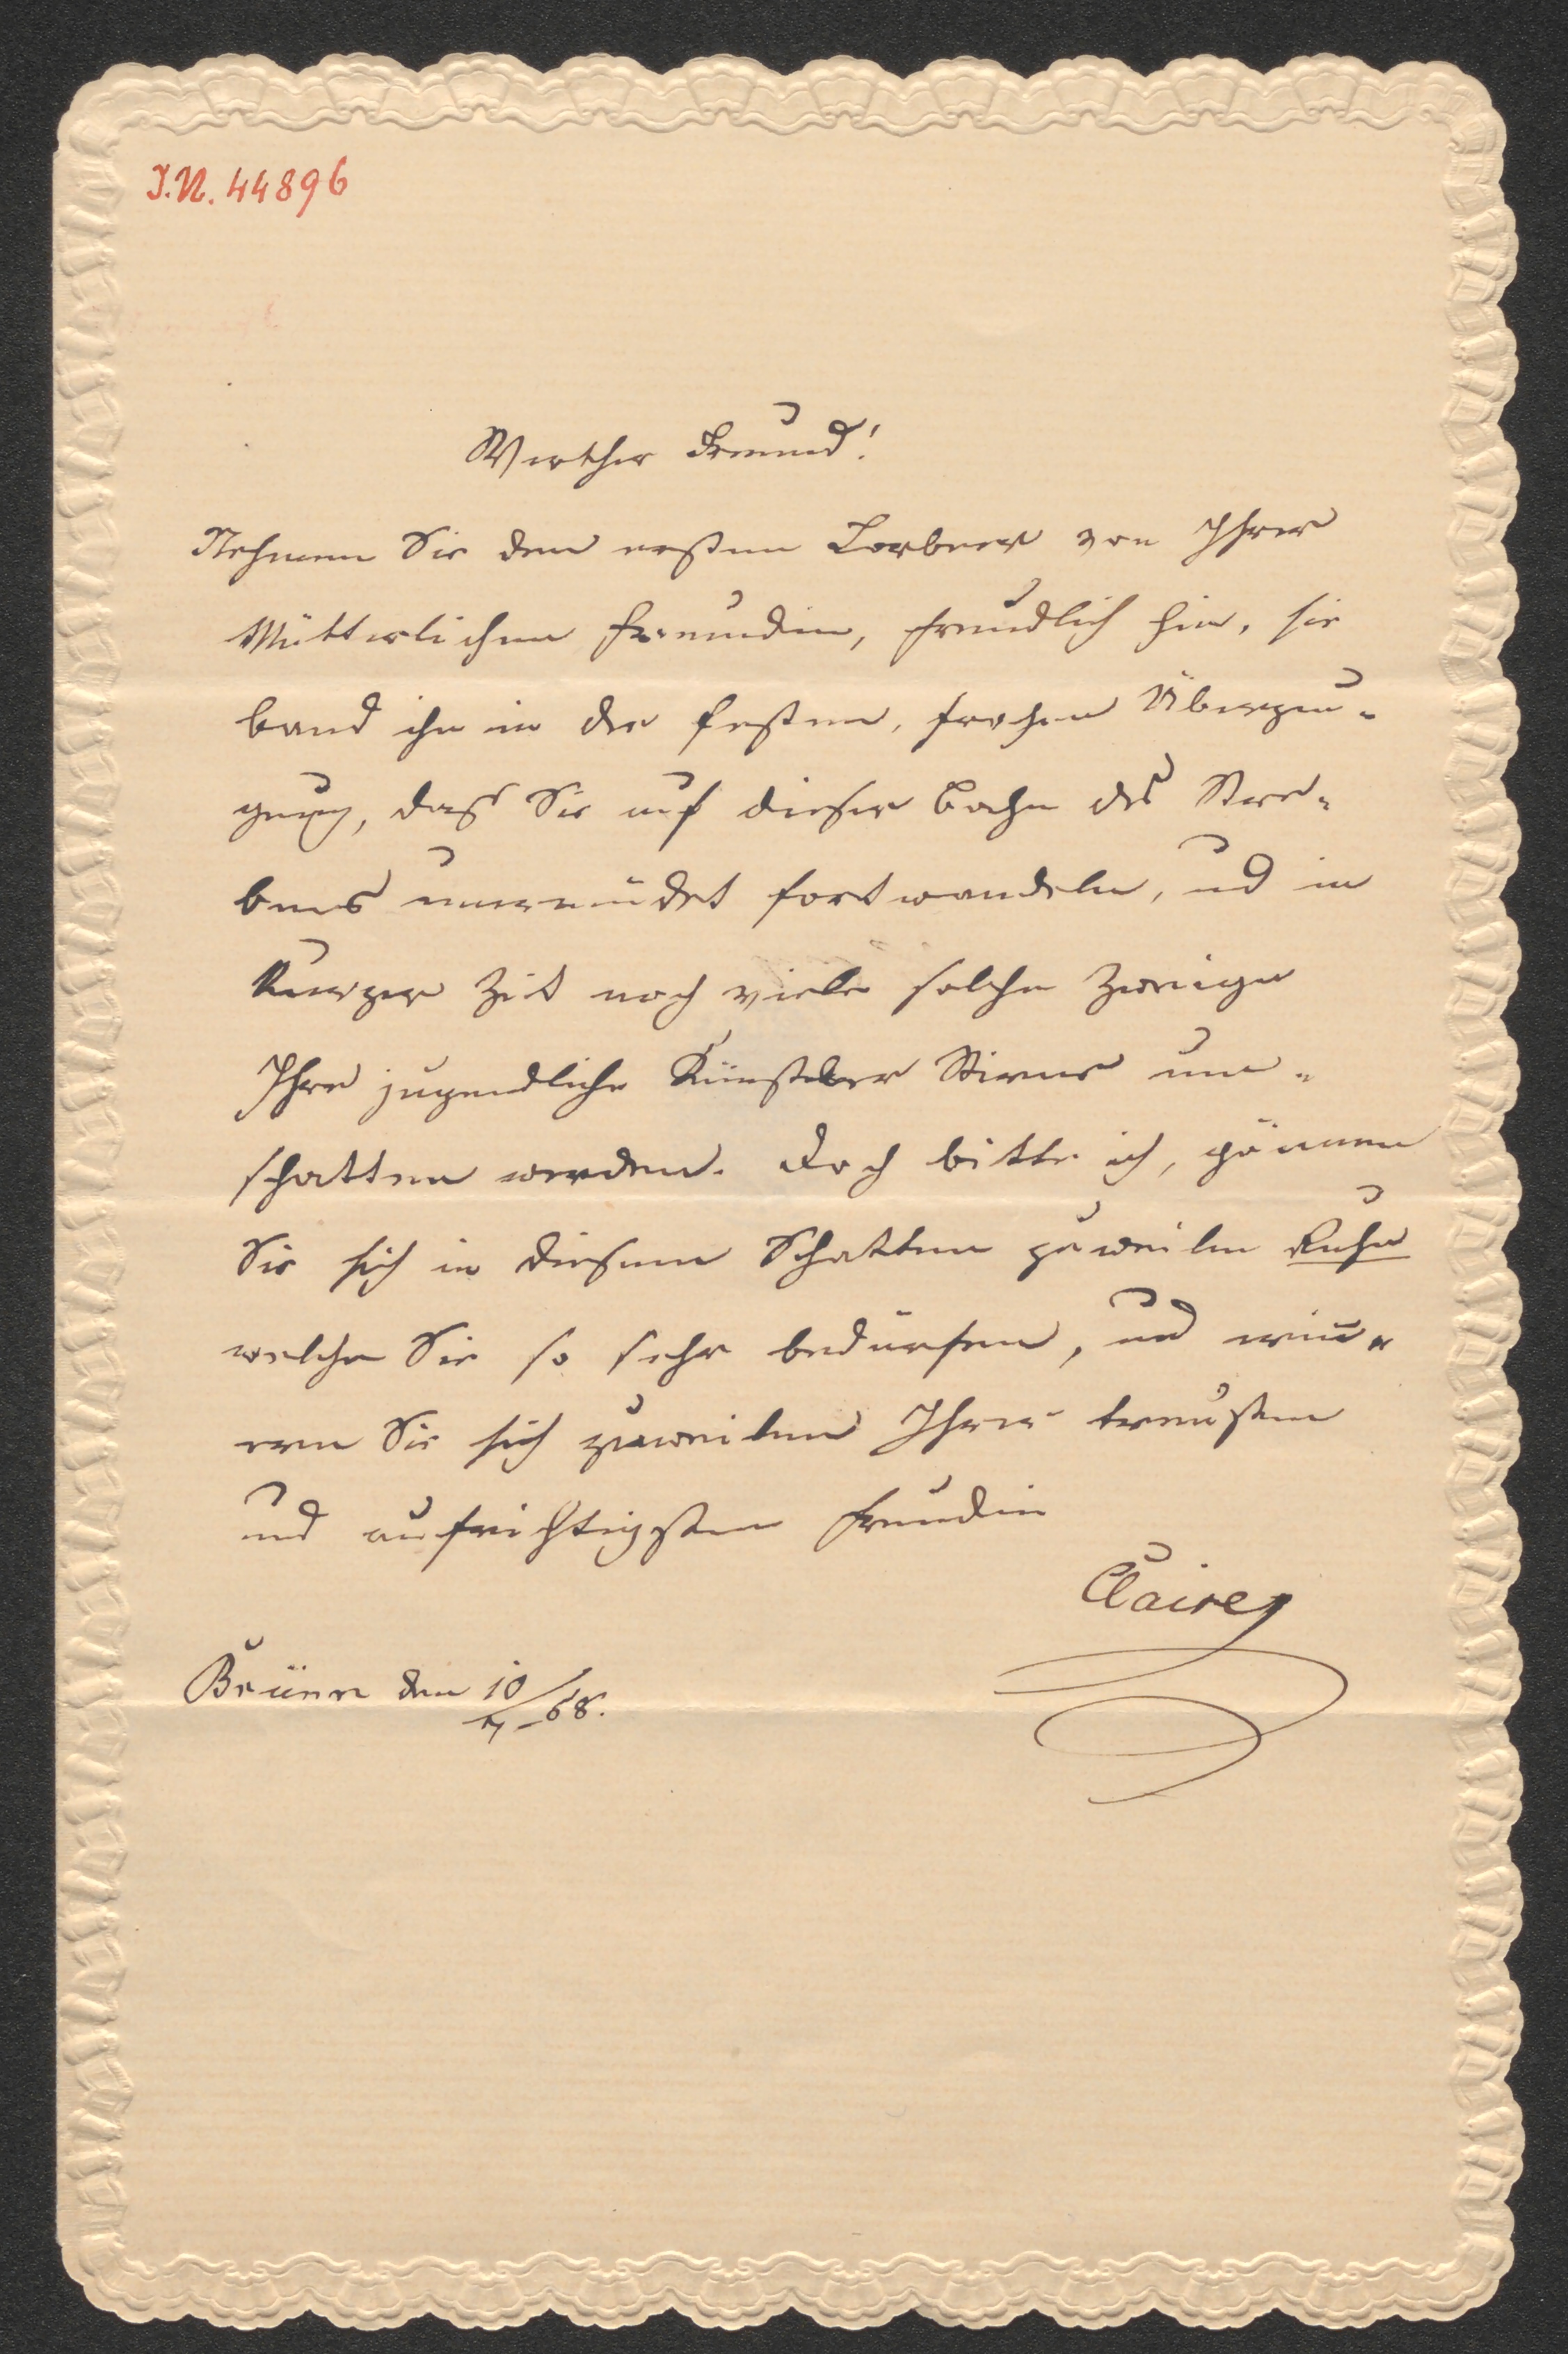 I.N. 44896
Werther Freund!
Nehmen Sie den ersten Lorbeer von Ihrer
Mütterlichen Freundin, freundlich hin, sie
band ihn in der festen, frohen Überzeu-
gung, daß Sie auf dieser Bahn des Stre-
bens unermüdet fortwandeln, und in
Kurzer Zeit noch viele solche Zweige
Ihre jugendliche Künstler Stirne um-
schatten werden. Doch bitte ich, gönnen
Sie sich in diesem Schatten zuweilen Ruhe
welche Sie so sehr bedürfen, und erin-
ern Sie sich zuweilen Ihrer treusten
und aufrichtigsten Freundin
Claire
Brünn den 10/4 –68.